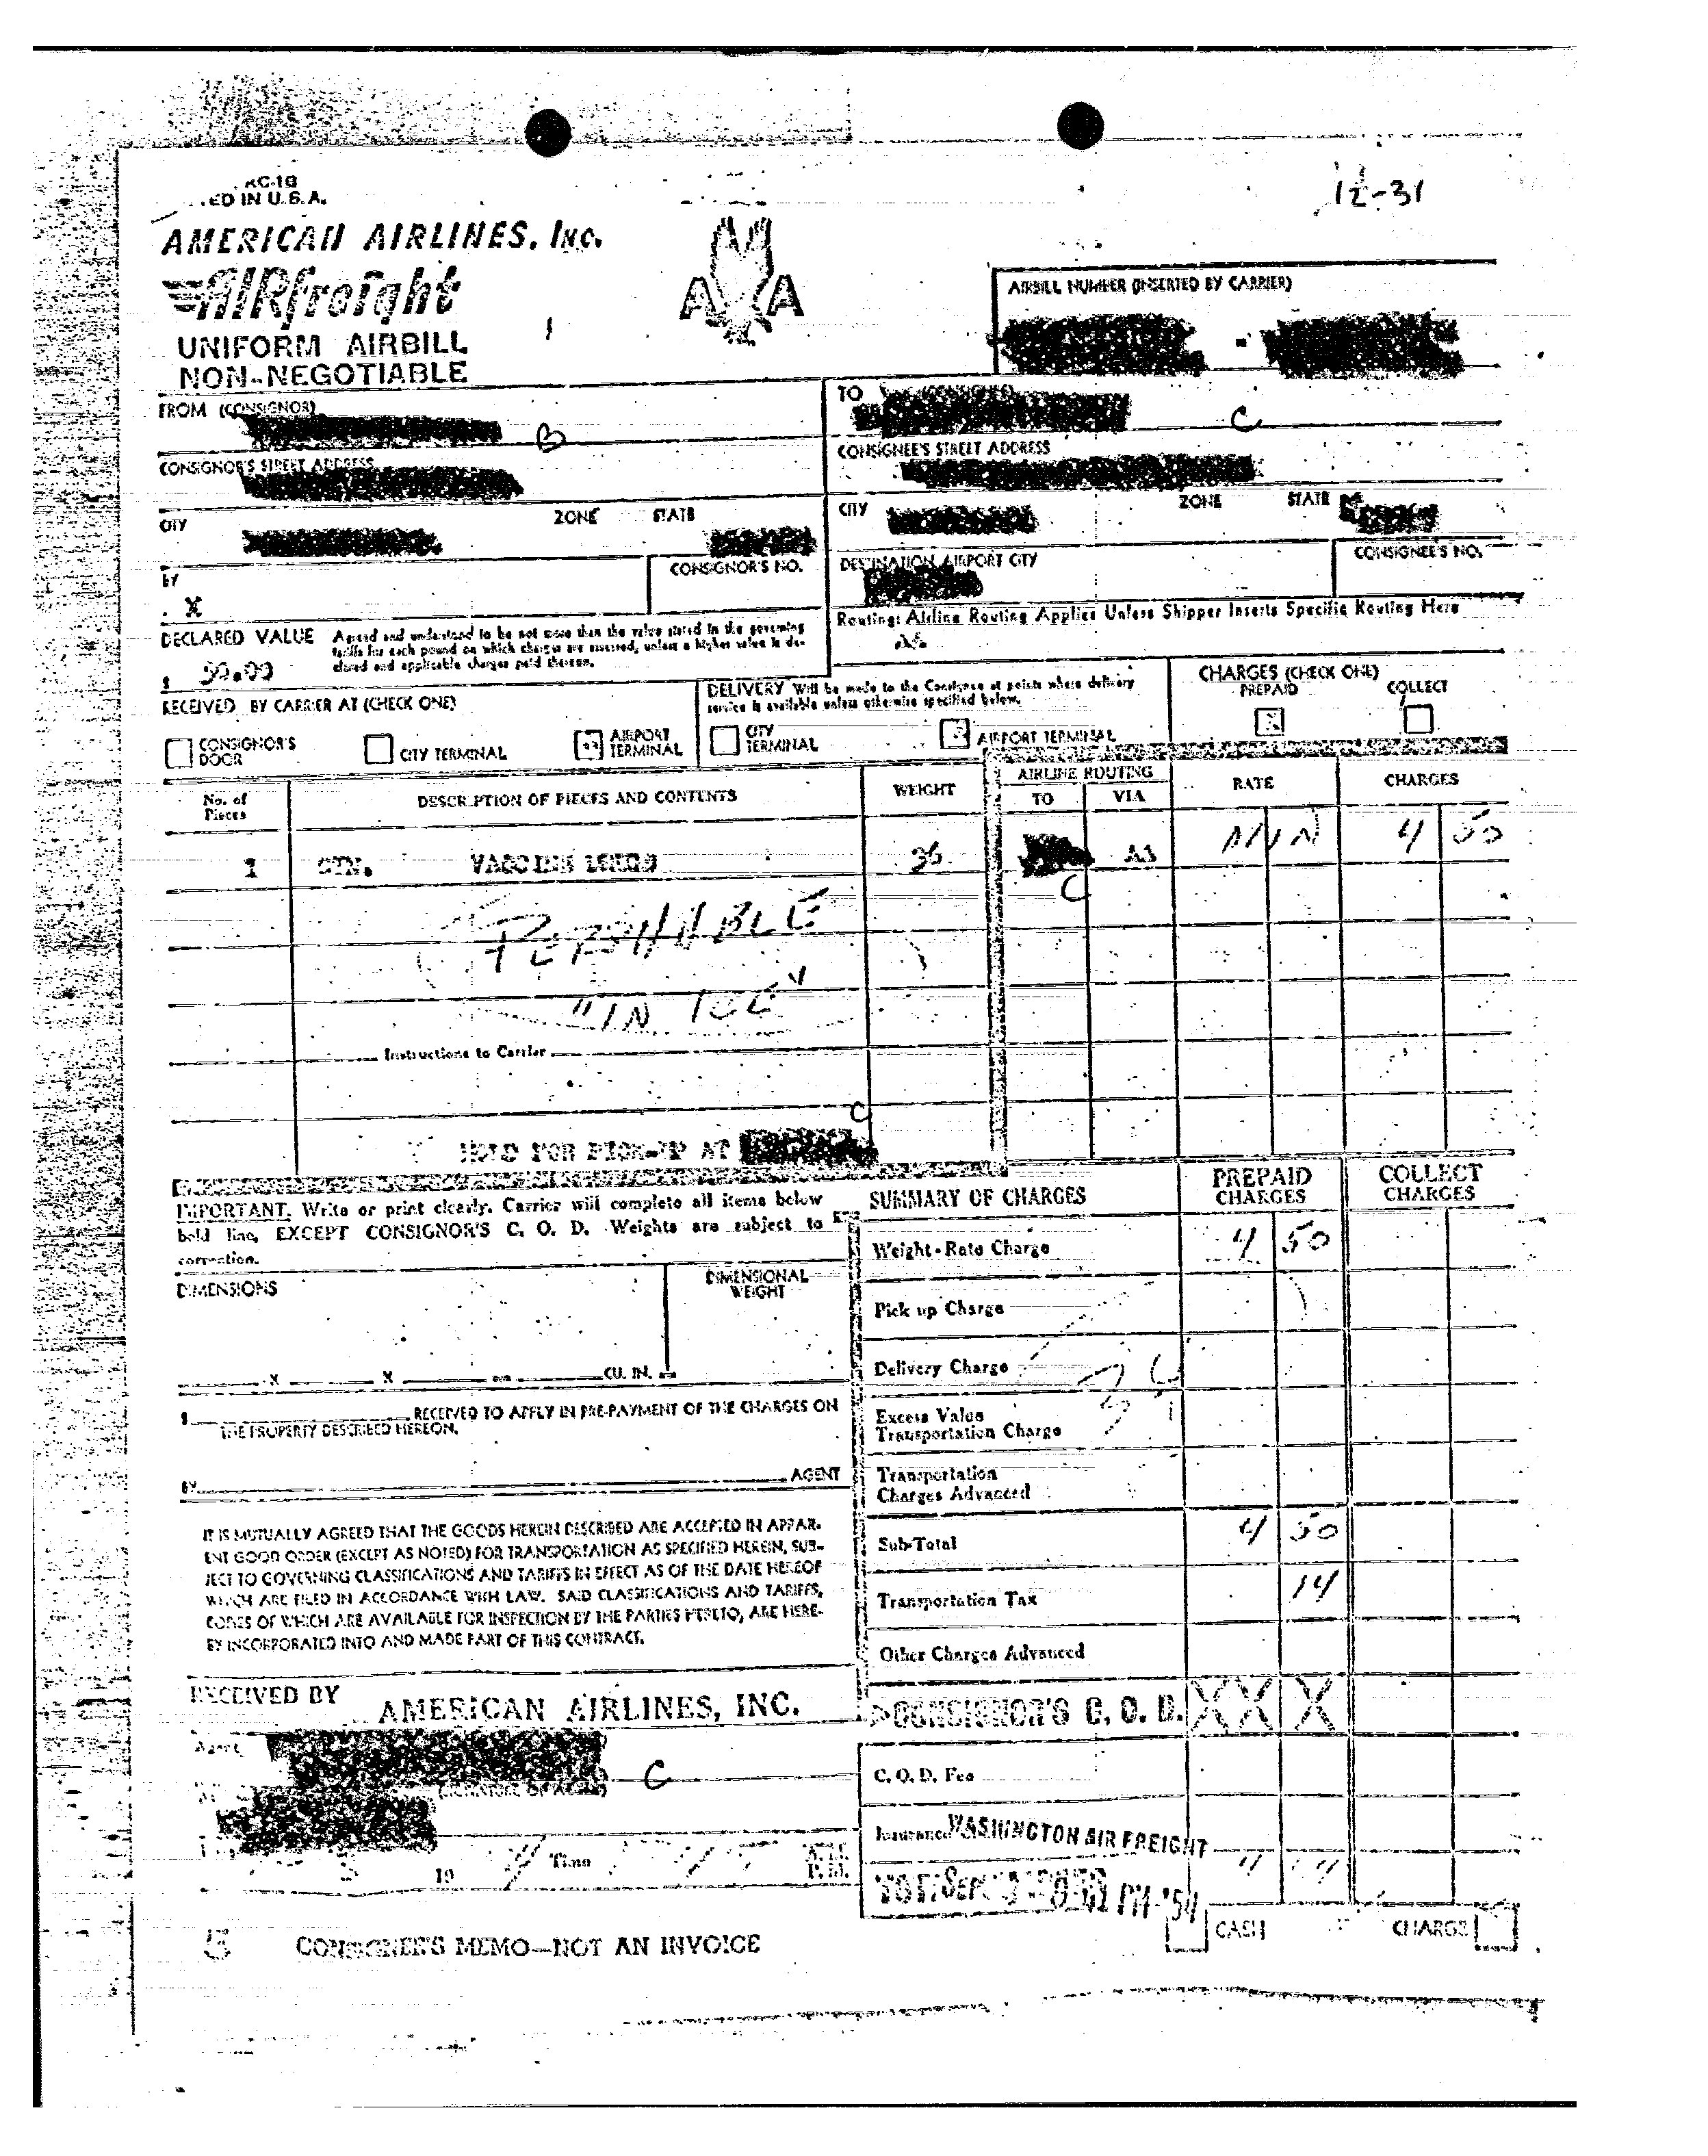 12-31
KC-1G
ED IN U.S.A.
AMERICAN AIRLINES, Inc.
AIRfreight
UNIFORM AIRBILL
NON-NEGOTIABLE
A A
AIRBILL NUMBER (INSERTED BY CARRIER)
FROM (CONSIGNOR)
B
TO (CONSIGNEE)
C
CONSIGNOR'S STREET ADDRESS
CONSIGNEE'S STREET ADDRESS
CITY ZONE STATE
CITY ZONE STATE
BY
X
CONSIGNOR'S NO.
DESTINATION AIRPORT CITY
CONSIGNEE'S NO.
Routing: Airline Routing Applies Unless Shipper Inserts Specific Routing Here
DECLARED VALUE Agreed and understood to be not more than the value stated in the governing
tariffs for each pound on which charges are assessed, unless a higher value is de-
clared and applicable charges paid thereon.
$ 50.00
RECEIVED BY CARRIER AT (CHECK ONE)
CONSIGNOR'S DOOR
CITY TERMINAL
AIRPORT TERMINAL
DELIVERY Will be made to the Consignee at points where delivery
service is available unless otherwise specified below.
CITY TERMINAL
AIRPORT TERMINAL
CHARGES (CHECK ONE)
PREPAID COLLECT
No. of Pieces
DESCRIPTION OF PIECES AND CONTENTS
WEIGHT
AIRLINE ROUTING
TO VIA
RATE
CHARGES
1 CTN. 36 AA MIN 4 50
C
PERISHABLE
"IN ICE"
Instructions to Carrier
C
HOLD FOR PICK-UP AT
IMPORTANT. Write or print clearly. Carrier will complete all items below
bold line, EXCEPT CONSIGNOR'S C. O. D. Weights are subject to
correction.
DIMENSIONS
DIMENSIONAL WEIGHT
X X = CU. IN. =
$ RECEIVED TO APPLY IN PRE-PAYMENT OF THE CHARGES ON
THE PROPERTY DESCRIBED HEREON.
BY AGENT
IT IS MUTUALLY AGREED THAT THE GOODS HEREIN DESCRIBED ARE ACCEPTED IN APPAR-
ENT GOOD ORDER (EXCEPT AS NOTED) FOR TRANSPORTATION AS SPECIFIED HEREIN, SUB-
JECT TO GOVERNING CLASSIFICATIONS AND TARIFFS IN EFFECT AS OF THE DATE HEREOF
WHICH ARE FILED IN ACCORDANCE WITH LAW. SAID CLASSIFICATIONS AND TARIFFS,
COPIES OF WHICH ARE AVAILABLE FOR INSPECTION BY THE PARTIES HERETO, ARE HERE-
BY INCORPORATED INTO AND MADE PART OF THIS CONTRACT.
RECEIVED BY AMERICAN AIRLINES, INC.
Agent
C
(SIGNATURE OF AGENT)
19 Time A.M.
P.M.
SUMMARY OF CHARGES
PREPAID CHARGES
COLLECT CHARGES
Weight-Rate Charge 4 50
Pick up Charge
Delivery Charge
Excess Value
Transportation Charge
Transportation
Charges Advanced
Sub-Total 4 50
Transportation Tax 14
Other Charges Advanced
CONSIGNOR'S C. O. D. XXX
C. O. D. Fee
Insurance
WASHINGTON AIR FREIGHT
SEP PM '54
CASH CHARGE
5 CONSIGNEE'S MEMO—NOT AN INVOICE